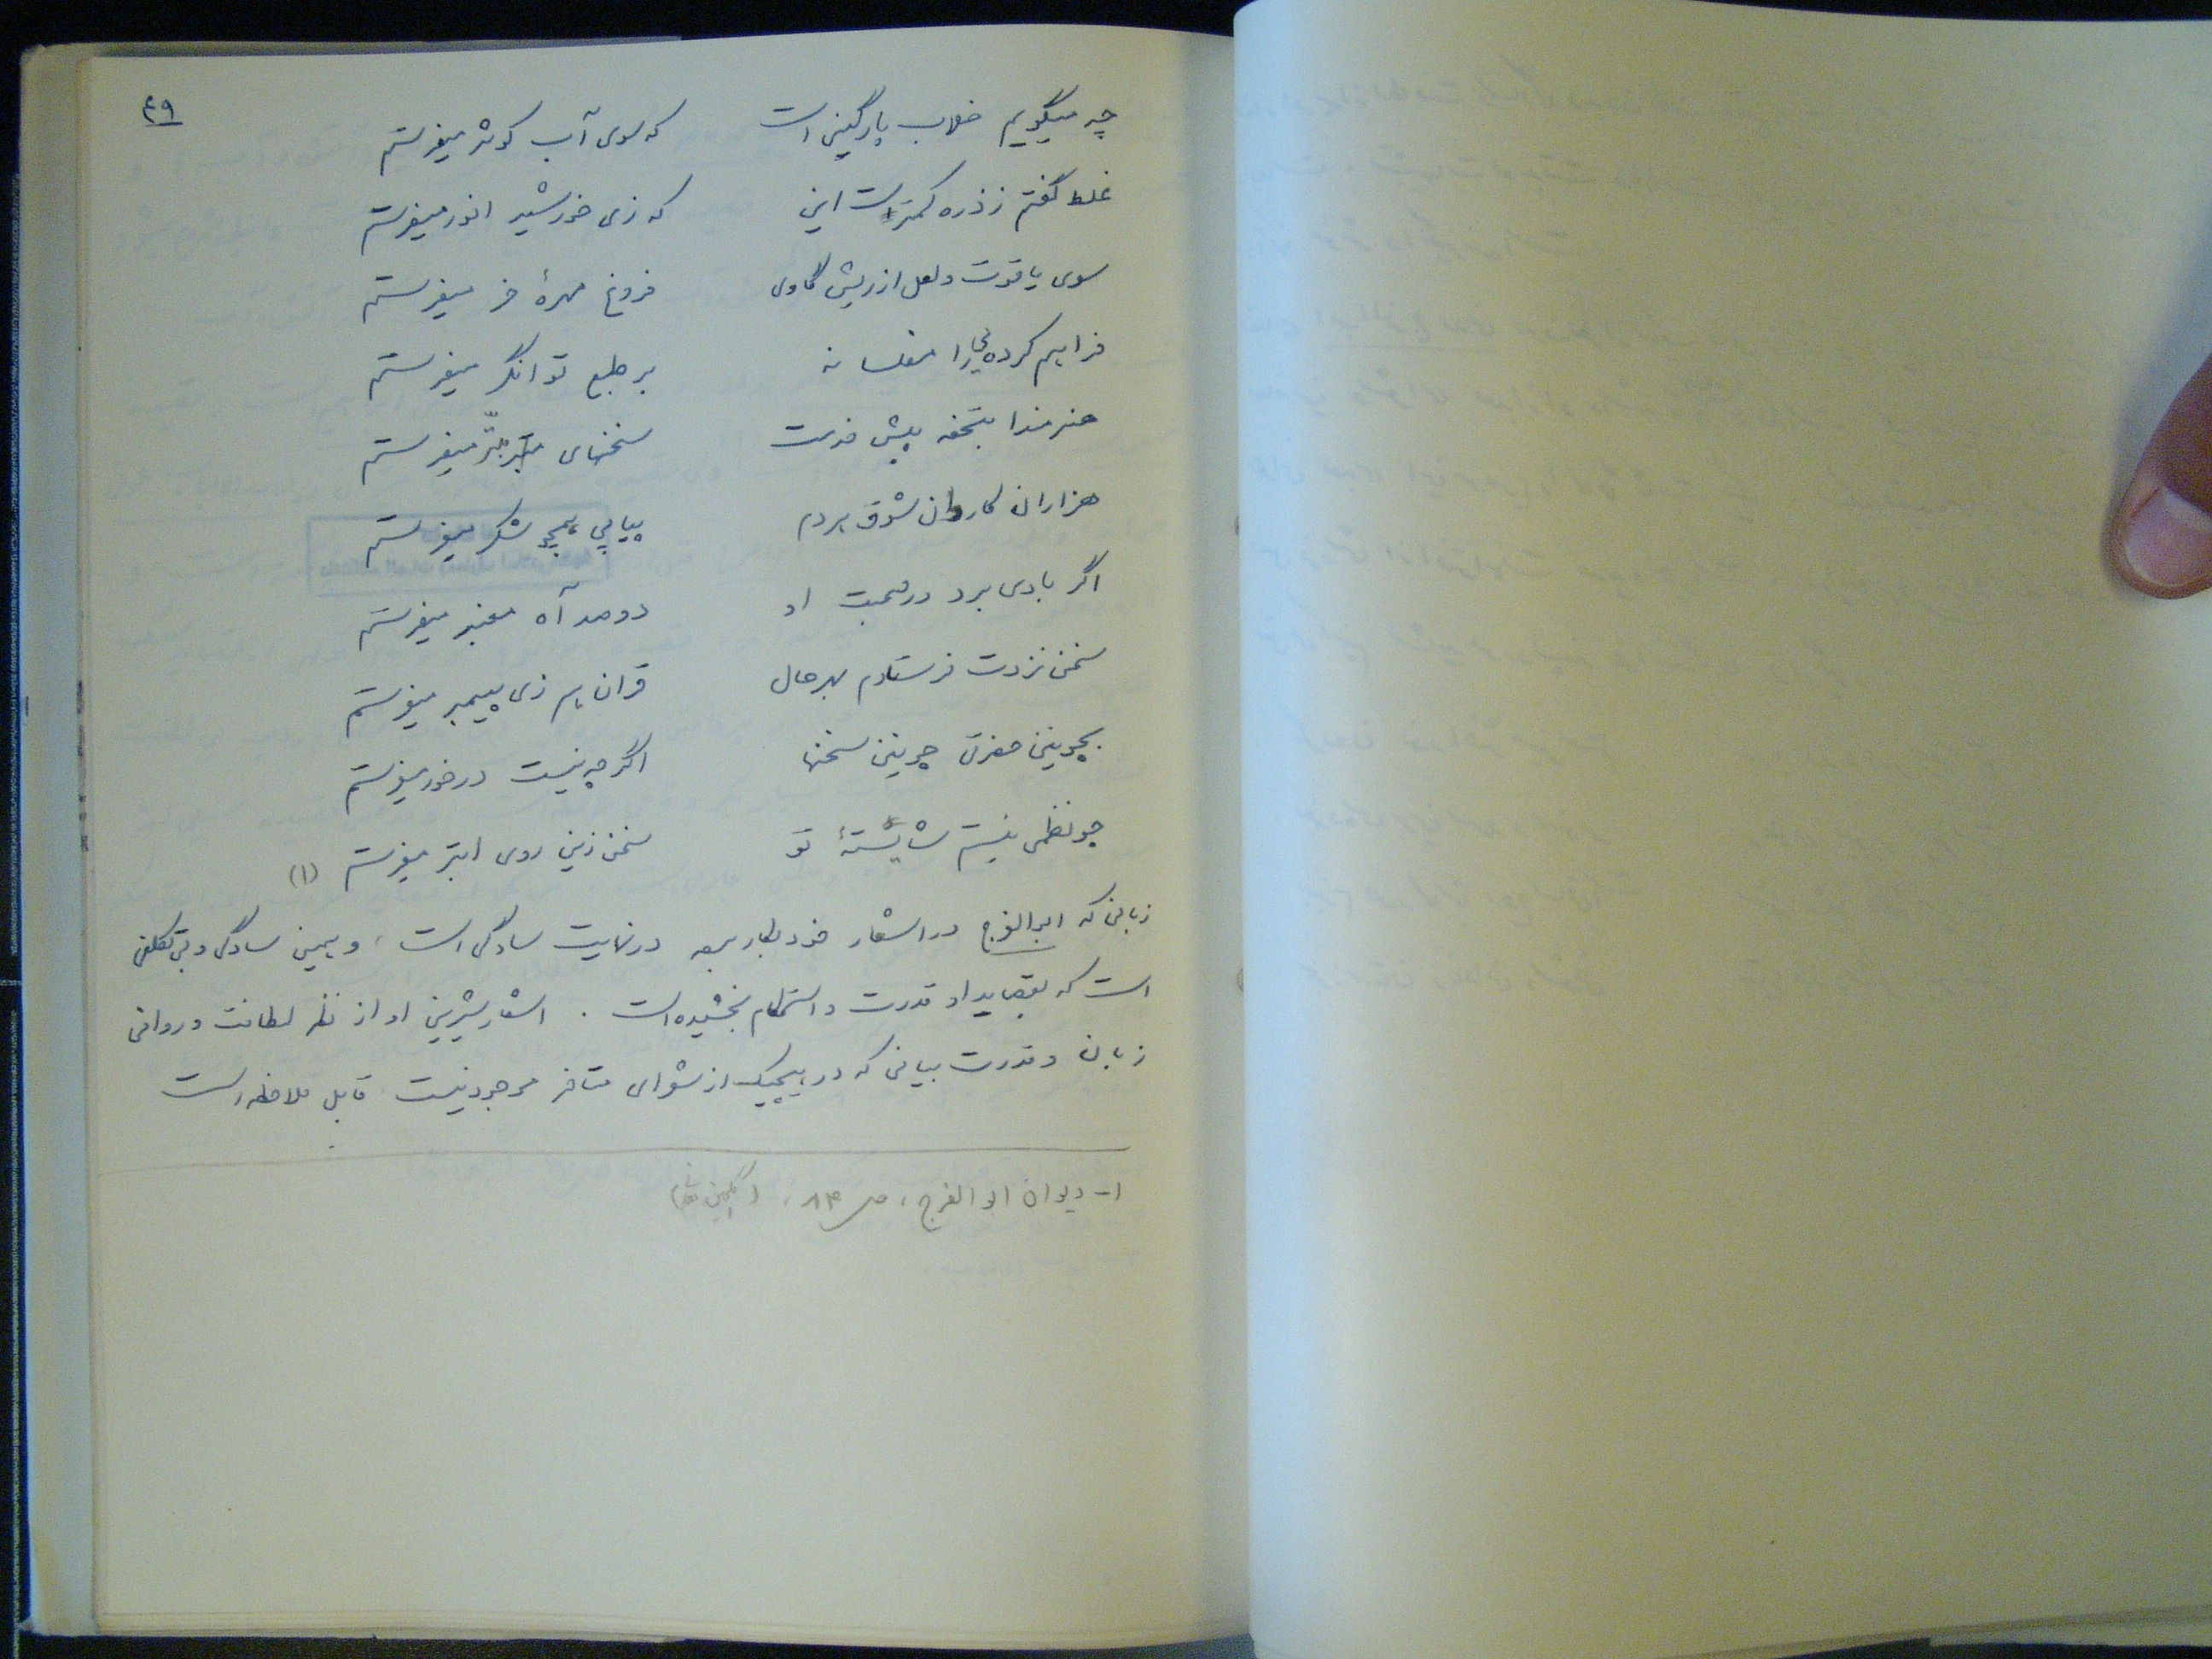 ۴۹
چه میگویم خلاب پارگینی است که سوی آب کوثر میفرستم
غلط گفتم ز ذره کمتر است این که زی خورشید انور میفرستم
سوی یاقوت و لعل از ریش گاوی فروغ مهرهٔ خر میفرستم
فراهم کرده را مفلسانه بر طبع توانگر میفرستم
هنرمندا بتحفه پیش خدمت سخنهای مبتر میفرستم
هزاران کاروان شوق بردم پیاپی شکر میفرستم
اگر بادی برد در صحبت او دو صد آه معنبر میفرستم
سخن نزدت فرستادم بهر حال قران هم زی پیمبر میفرستم
بچونین حضرتی چونین سخنها اگر چه نیست در خور میفرستم
چو نظمی نیستم شایستهٔ تو سخن زین روی ابتر میفرستم (۱)
زبانی که ابوالفرج در اشعار خود بکار برده در نهایت سادگی است، و همین سادگی و بی تکلفی
است که بقصاید او قدرت و استحکام بخشیده است. اشعار شیرین او از نظر لطافت و روانی
زبان و قدرت بیانی که در هیچیک از شعرای متاخر موجود نیست قابل ملاحظه است
۱- دیوان ابوالفرج، ص ۸۴،